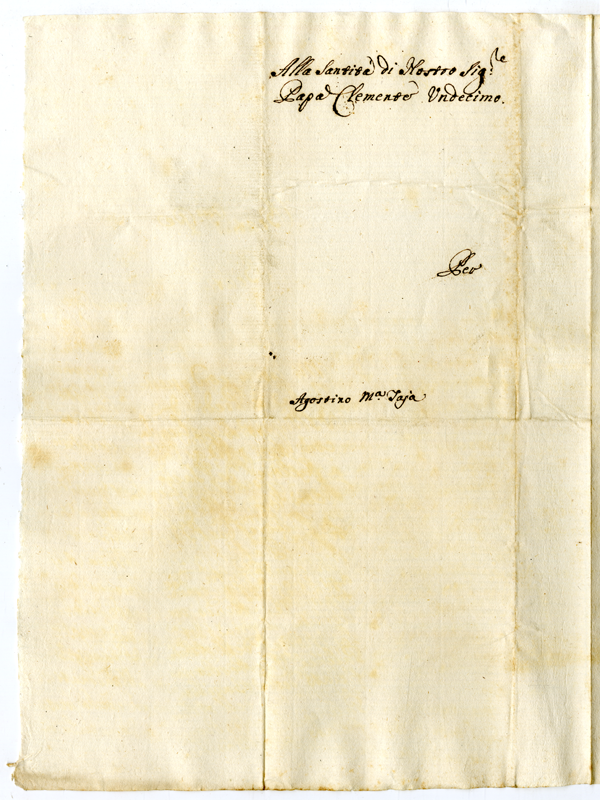 Alla Santità di Nostro Sig.re
Papa Clemente Undecimo.
Per
Agostino Ma Taja